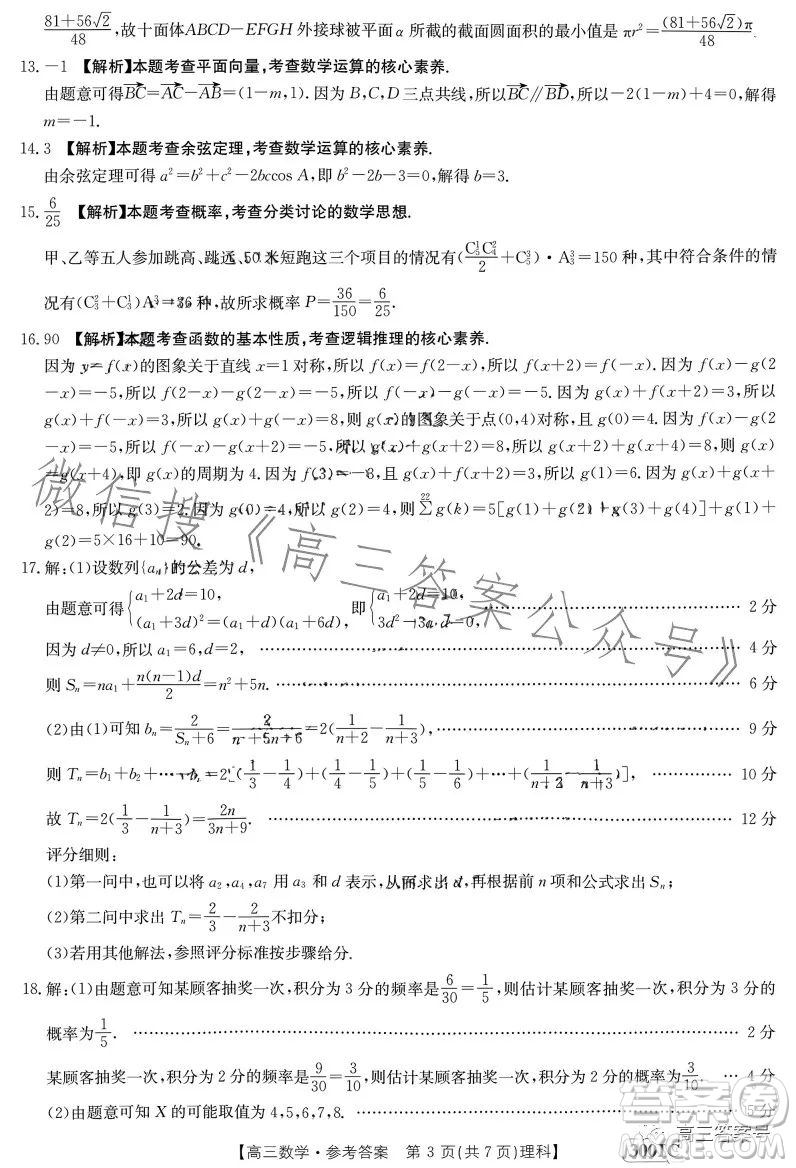 81+56√2/48,故十面体ABCD-EFGH外接球被平面α所截的截面圆面积的最小值是πr²=(81+56√2)π/48.
13.-1 【解析】本题考查平面向量,考查数学运算的核心素养.
由题意可得BC=AC-AB=(1-m,1).因为B,C,D三点共线,所以BC∥BD,所以-2(1-m)+4=0,解得
m=-1.
14.3 【解析】本题考查余弦定理,考查数学运算的核心素养.
由余弦定理可得a²=b²+c²-2bccos A,即b²-2b-3=0,解得b=3.
15.6/25 【解析】本题考查概率,考查分类讨论的数学思想.
甲、乙等五人参加跳高、跳远、50米短跑这三个项目的情况有(C¹₅C²₄/2+C³₅)·A³₃=150种,其中符合条件的情
况有(C²₃+C¹₃)A³₃=36种,故所求概率P=36/150=6/25.
16.90 【解析】本题考查函数的基本性质,考查逻辑推理的核心素养.
因为y=f(x)的图象关于直线x=1对称,所以f(x)=f(2-x),所以f(x+2)=f(-x).因为f(x)-g(2
-x)=-5,所以f(2-x)-g(2-x)=-5,所以f(-x)-g(-x)=-5.因为f(x+2)+g(x)=3,所以
g(x)+f(-x)=3,所以g(x)+g(-x)=8,则g(x)的图象关于点(0,4)对称,且g(0)=4.因为f(x)-g(2
-x)=-5,所以f(x+2)-g(-x)=-5,所以g(x)+g(x+2)=8,则g(x+2)+g(x+4)=8,所以g(x)
=g(x+4),即g(x)的周期为4.因为f(3)=-3,且f(3)+g(1)=3,所以g(1)=6.因为g(x)+g(x+
2)=8,所以g(3)=2.因为g(0)=4,所以g(2)=4,则∑²²g(k)=5[g(1)+g(2)+g(3)+g(4)]+g(1)+
g(2)=5×16+10=90.
17.解:(1)设数列{aₙ}的公差为d,
由题意可得{a₁+2d=10, (a₁+3d)²=(a₁+d)(a₁+6d), 即{a₁+2d=10, 3d²-3a₁d=0, 2分
因为d≠0,所以a₁=6,d=2, 4分
则Sₙ=na₁+n(n-1)d/2=n²+5n. 6分
(2)由(1)可知bₙ=2/Sₙ+6=2/n²+5n+6=2(1/n+2-1/n+3), 9分
则Tₙ=b₁+b₂+…+bₙ=2[(1/3-1/4)+(1/4-1/5)+(1/5-1/6)+…+(1/n+2-1/n+3)], 10分
故Tₙ=2(1/3-1/n+3)=2n/3n+9. 12分
评分细则:
(1)第一问中,也可以将a₂,a₄,a₇用a₃和d表示,从而求出d,再根据前n项和公式求出Sₙ;
(2)第二问中求出Tₙ=2/3-2/n+3不扣分;
(3)若用其他解法,参照评分标准按步骤给分.
18.解:(1)由题意可知某顾客抽奖一次,积分为3分的频率是6/30=1/5,则估计某顾客抽奖一次,积分为3分的
概率为1/5. 2分
某顾客抽奖一次,积分为2分的频率是9/30=3/10,则估计某顾客抽奖一次,积分为2分的概率为3/10. 4分
(2)由题意可知X的可能取值为4,5,6,7,8. 5分
【高三数学·参考答案 第3页(共7页)理科】 3001C
微信搜《高三答案公众号》
答案圈
高三答案号